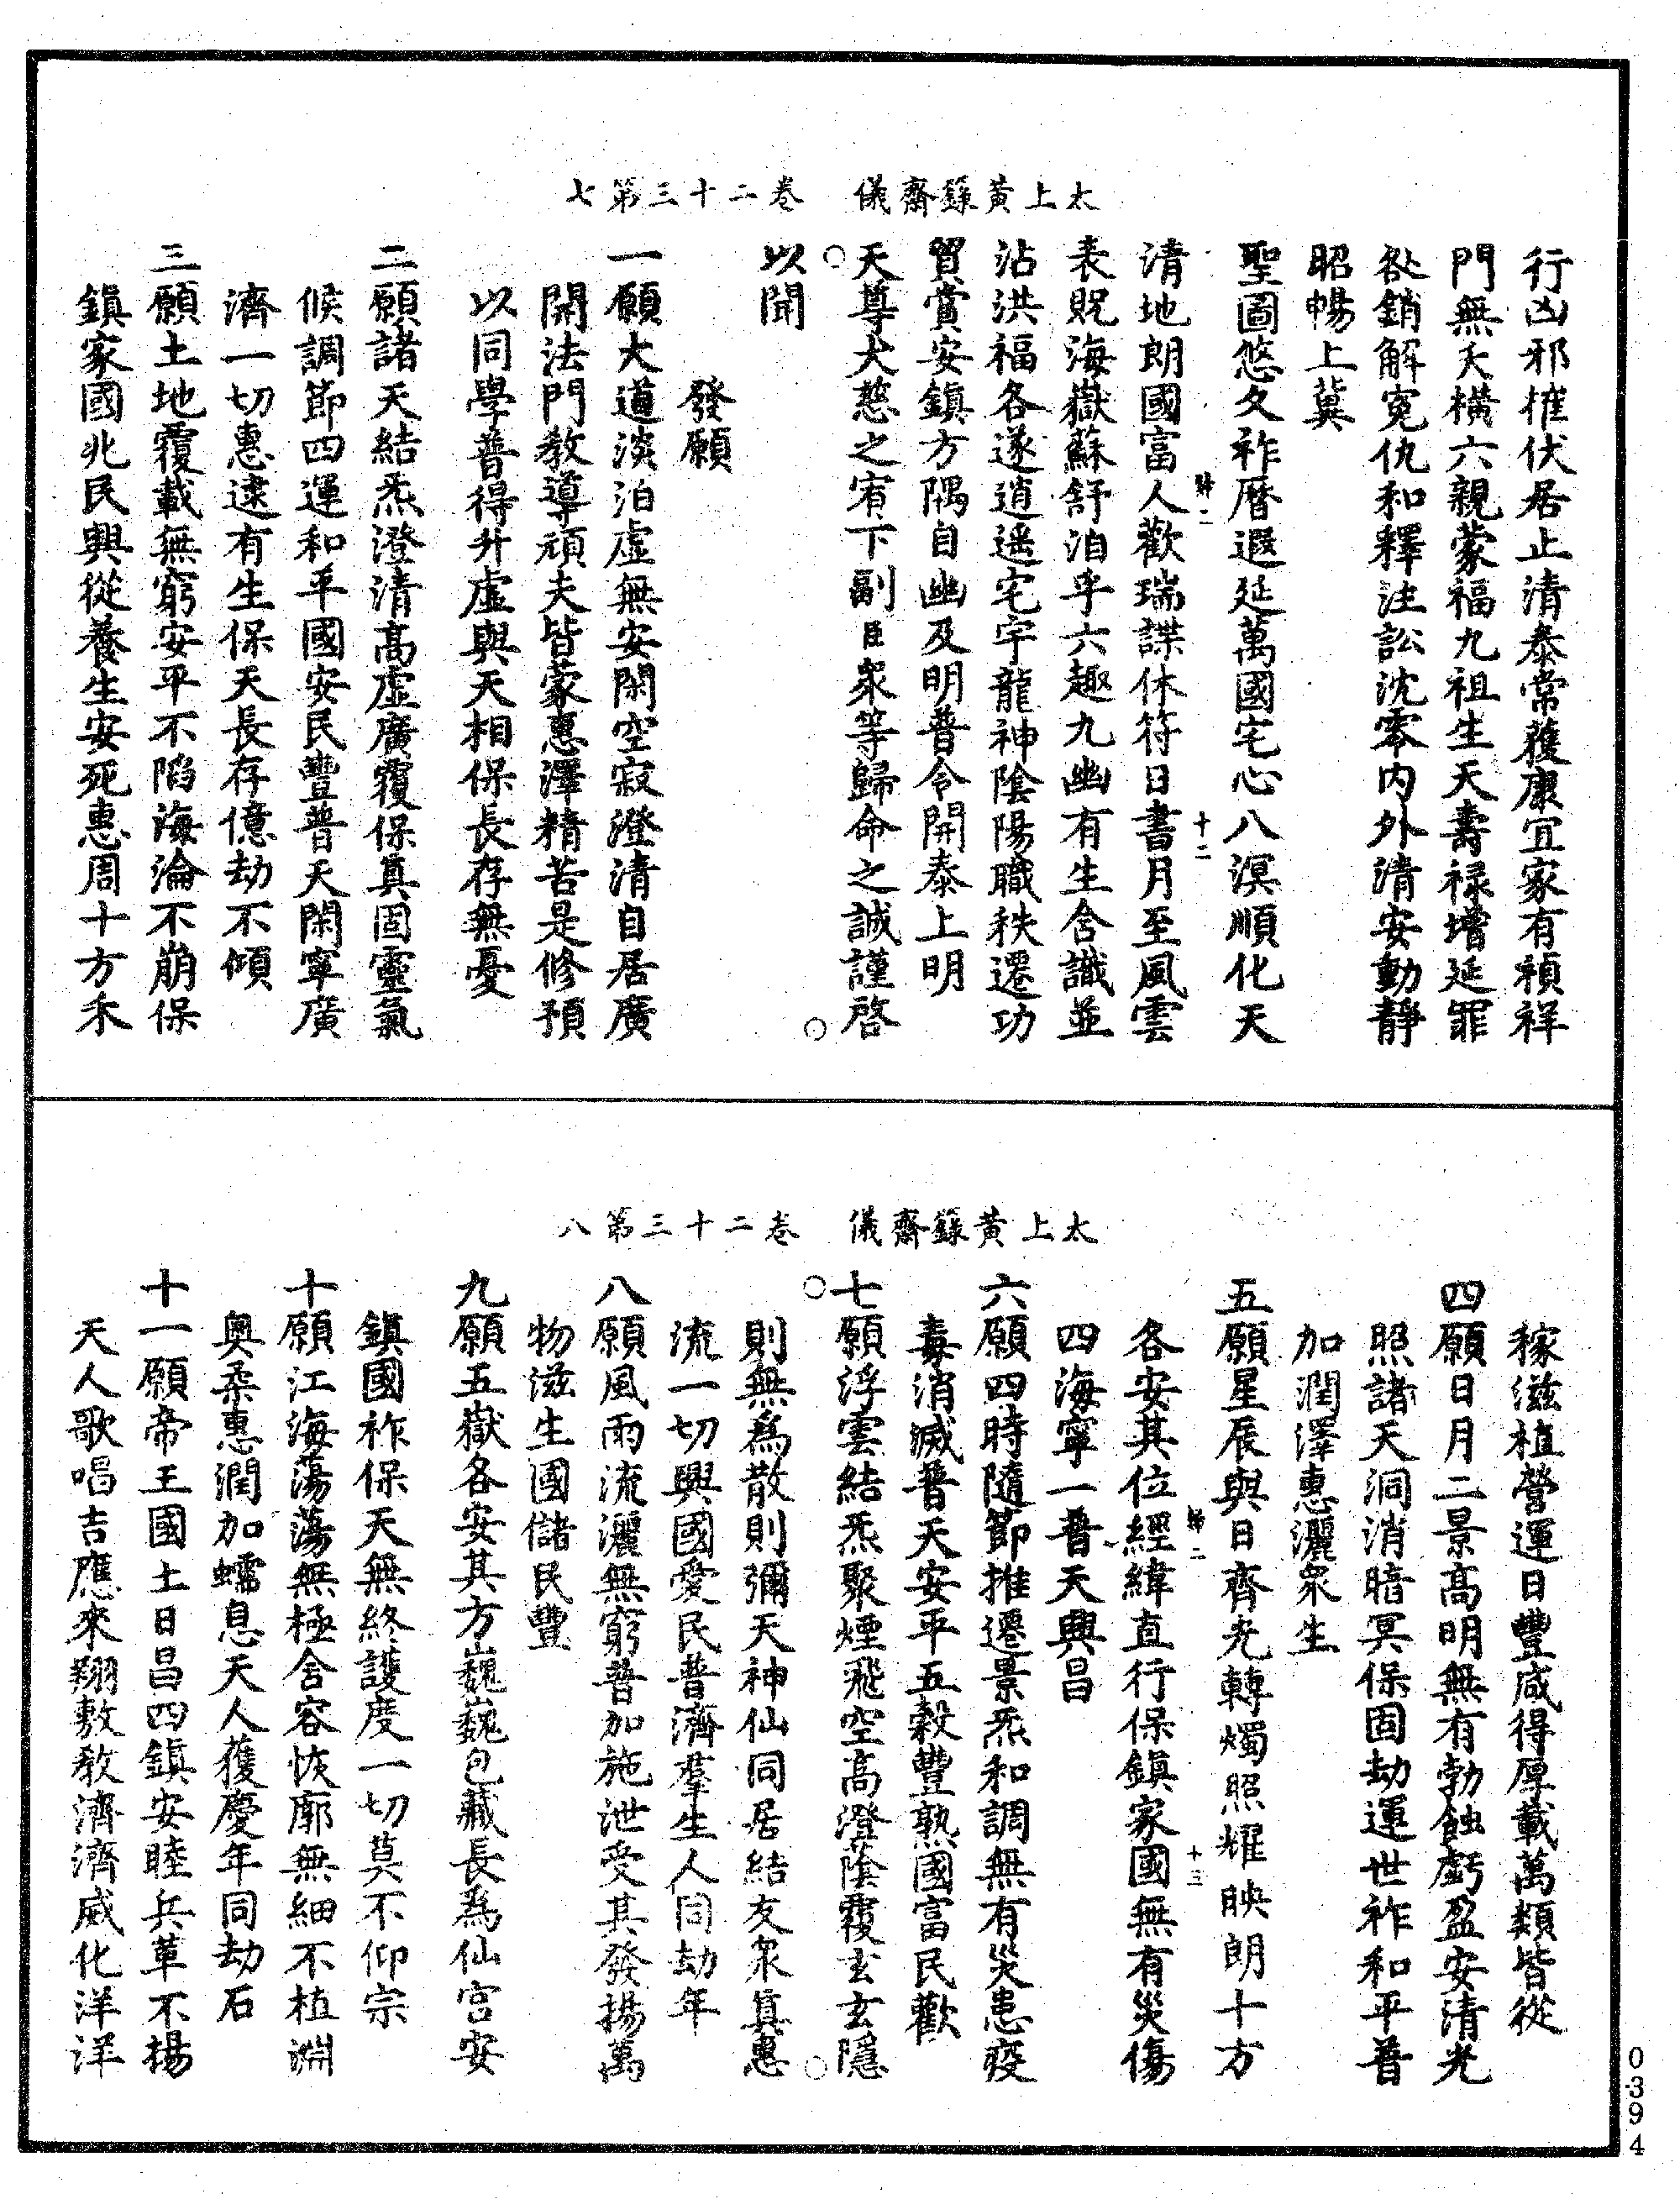 太上黃籙齋儀　卷二十三第七
行凶邪摧伏居止清泰常獲康宜家有禎祥
門無夭橫六親蒙福九祖生天壽祿增延罪
咎銷解寃仇和釋注訟沈零內外清安動靜
昭暢上冀
聖圖悠久祚曆遐延萬國宅心八溟順化天
清地朗國富人歡瑞諜休符日書月至風雲
歸二　十二
表貺海嶽蘇舒洎乎六趣九幽有生含識並
沾洪福各遂逍遥宅宇龍神陰陽職秩遷功
貿賞安鎮方隅自幽及明普令開泰上明
天尊大慈之宥下副臣衆等歸命之誠謹啓
以聞
發願
一願大道淡泊虛無安閑空寂澄清自居廣
開法門教導頑夫皆蒙惠澤精苦是修預
以同學普得升虛與天相保長存無憂
二願諸天結炁澄清高虛廣覆保真固靈氣
候調節四運和平國安民豐普天閑寧廣
濟一切惠逮有生保天長存億劫不傾
三願土地覆載無窮安平不陷海淪不崩保
鎮家國兆民興從養生安死惠周十方禾
太上黃籙齋儀　卷二十三第八
稼滋植營運日豐咸得厚載萬類皆從
四願日月二景高明無有勃蝕虧盈安清光
照諸天洞消暗冥保固劫運世祚和平普
加潤澤惠灑衆生
五願星辰與日齊光轉燭照耀映朗十方
歸二　十三
各安其位經緯直行保鎮家國無有災傷
四海寧一普天興昌
六願四時隨節推遷景炁和調無有災患疫
毒消滅普天安平五穀豐熟國富民歡
七願浮雲結炁聚煙飛空高澄蔭覆玄玄隱
則無爲散則彌天神仙同居結友衆真惠
流一切興國愛民普濟羣生人同劫年
八願風雨流灑無窮普加施泄受其發揚萬
物滋生國儲民豐
九願五嶽各安其方巍巍包藏長爲仙宮安
鎮國祚保天無終護度一切莫不仰宗
十願江海蕩蕩無極含容恢廓無細不植淵
奧柔惠潤加蠕息天人獲慶年同劫石
十一願帝王國土日昌四鎮安睦兵革不揚
天人歌唱吉應來翔敷教濟濟威化洋洋
0394